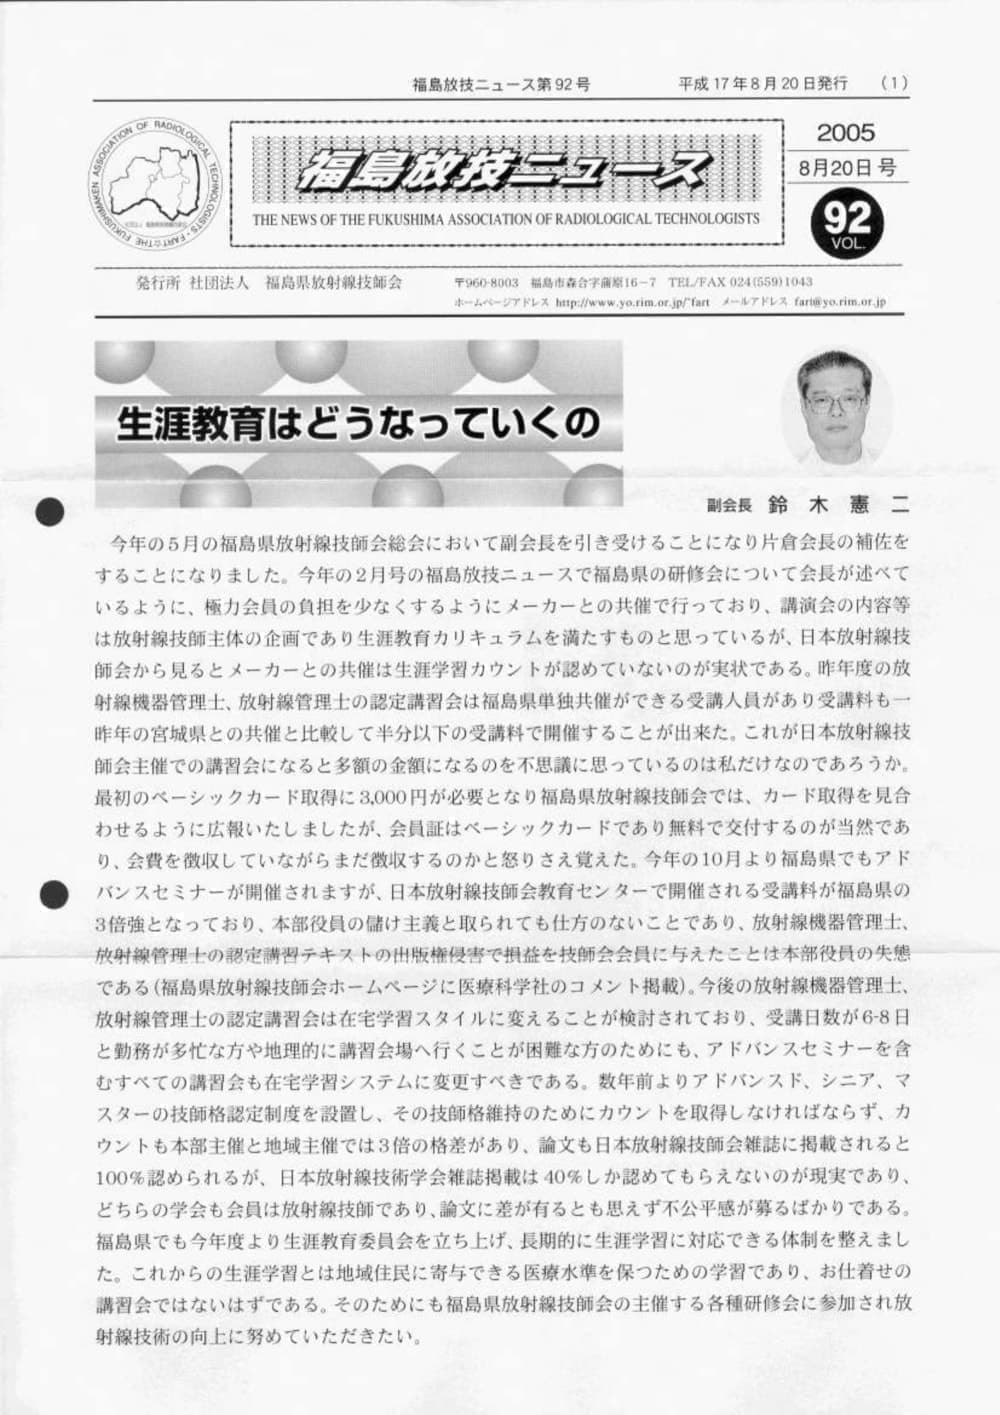 福島放技ニュース第92号　平成17年8月20日発行　(1)
THE FUKUSHIMAKEN ASSOCIATION OF RADIOLOGICAL TECHNOLOGISTS・FART☆
福島放技ニュース
THE NEWS OF THE FUKUSHIMA ASSOCIATION OF RADIOLOGICAL TECHNOLOGISTS
2005
8月20日 号
92
VOL.
発行所 社団法人　福島県放射線技師会
〒960-8003　福島市森合字蒲原16−7　TEL/FAX 024(559)1043
ホームページアドレス http://www.yo.rim.or.jp/~fart　メールアドレス fart@yo.rim.or.jp
生涯教育はどうなっていくの
副会長　鈴　木　憲　二
今年の5月の福島県放射線技師会総会において副会長を引き受けることになり片倉会長の補佐を
することになりました。今年の2月号の福島放技ニュースで福島県の研修会について会長が述べて
いるように、極力会員の負担を少なくするようにメーカーとの共催で行っており、講演会の内容等
は放射線技師主体の企画であり生涯教育カリキュラムを満たすものと思っているが、日本放射線技
師会から見るとメーカーとの共催は生涯学習カウントが認めていないのが実状である。昨年度の放
射線機器管理士、放射線管理士の認定講習会は福島県単独共催ができる受講人員があり受講料も一
昨年の宮城県との共催と比較して半分以下の受講料で開催することが出来た。これが日本放射線技
師会主催での講習会になると多額の金額になるのを不思議に思っているのは私だけなのであろうか。
最初のベーシックカード取得に3,000円が必要となり福島県放射線技師会では、カード取得を見合
わせるように広報いたしましたが、会員証はベーシックカードであり無料で交付するのが当然であ
り、会費を徴収していながらまだ徴収するのかと怒りさえ覚えた。今年の10月より福島県でもアド
バンスセミナーが開催されますが、日本放射線技師会教育センターで開催される受講料が福島県の
3倍強となっており、本部役員の儲け主義と取られても仕方のないことであり、放射線機器管理士、
放射線管理士の認定講習テキストの出版権侵害で損益を技師会会員に与えたことは本部役員の失態
である(福島県放射線技師会ホームページに医療科学社のコメント掲載)。今後の放射線機器管理士、
放射線管理士の認定講習会は在宅学習スタイルに変えることが検討されており、受講日数が6-8日
と勤務が多忙な方や地理的に講習会場へ行くことが困難な方のためにも、アドバンスセミナーを含
むすべての講習会も在宅学習システムに変更すべきである。数年前よりアドバンスド、シニア、マ
スターの技師格認定制度を設置し、その技師格維持のためにカウントを取得しなければならず、カ
ウントも本部主催と地域主催では3倍の格差があり、論文も日本放射線技師会雑誌に掲載されると
100％認められるが、日本放射線技術学会雑誌掲載は40％しか認めてもらえないのが現実であり、
どちらの学会も会員は放射線技師であり、論文に差が有るとも思えず不公平感が募るばかりである。
福島県でも今年度より生涯教育委員会を立ち上げ、長期的に生涯学習に対応できる体制を整えまし
た。これからの生涯学習とは地域住民に寄与できる医療水準を保つための学習であり、お仕着せの
講習会ではないはずである。そのためにも福島県放射線技師会の主催する各種研修会に参加され放
射線技術の向上に努めていただきたい。